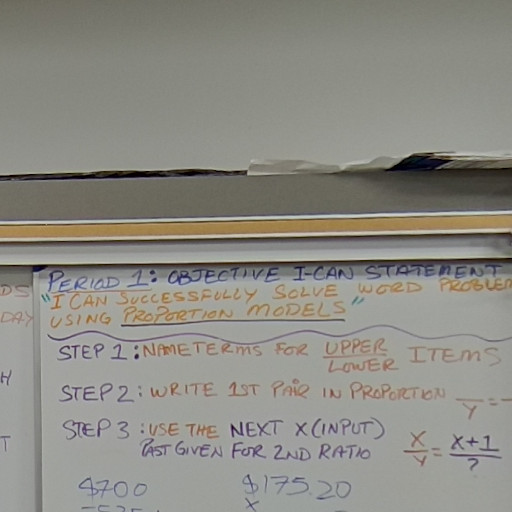 PERIOD 1: OBJECTIVE I-CAN STATEMENT
"I CAN SUCCESSFULLY SOLVE WORD PROBLEM
USING PROPORTION MODELS"
STEP 1: NAME TERMS FOR UPPER ITEMS
LOWER
STEP 2: WRITE 1ST PAIR IN PROPORTION — = —
Y
STEP 3: USE THE NEXT X (INPUT)
PAST GIVEN FOR 2ND RATIO
X/Y = X+1/?
$700 $175.20
X
DS
DAY
H
T